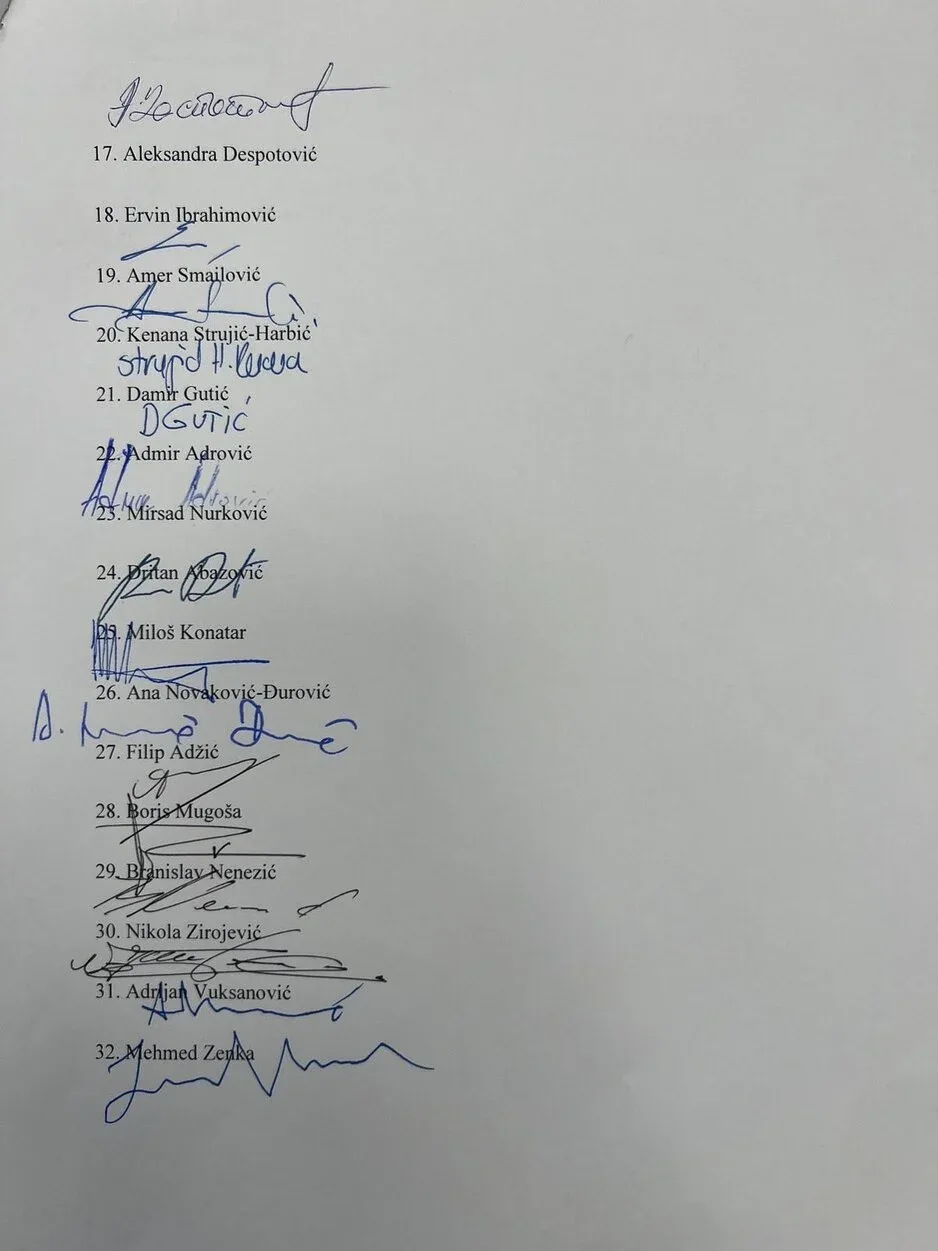 17. Aleksandra Despotović
18. Ervin Ibrahimović
19. Amer Smailović
20. Kenana Strujić-Harbić
strujić H. Kenana
21. Damir Gutić
DGUTIĆ
22. Admir Adrović
Admir Adrović
23. Mirsad Nurković
24. Dritan Abazović
25. Miloš Konatar
26. Ana Novaković-Đurović
27. Filip Adžić
28. Boris Mugoša
29. Branislav Nenezić
30. Nikola Zirojević
31. Adrijan Vuksanović
32. Mehmed Zenka